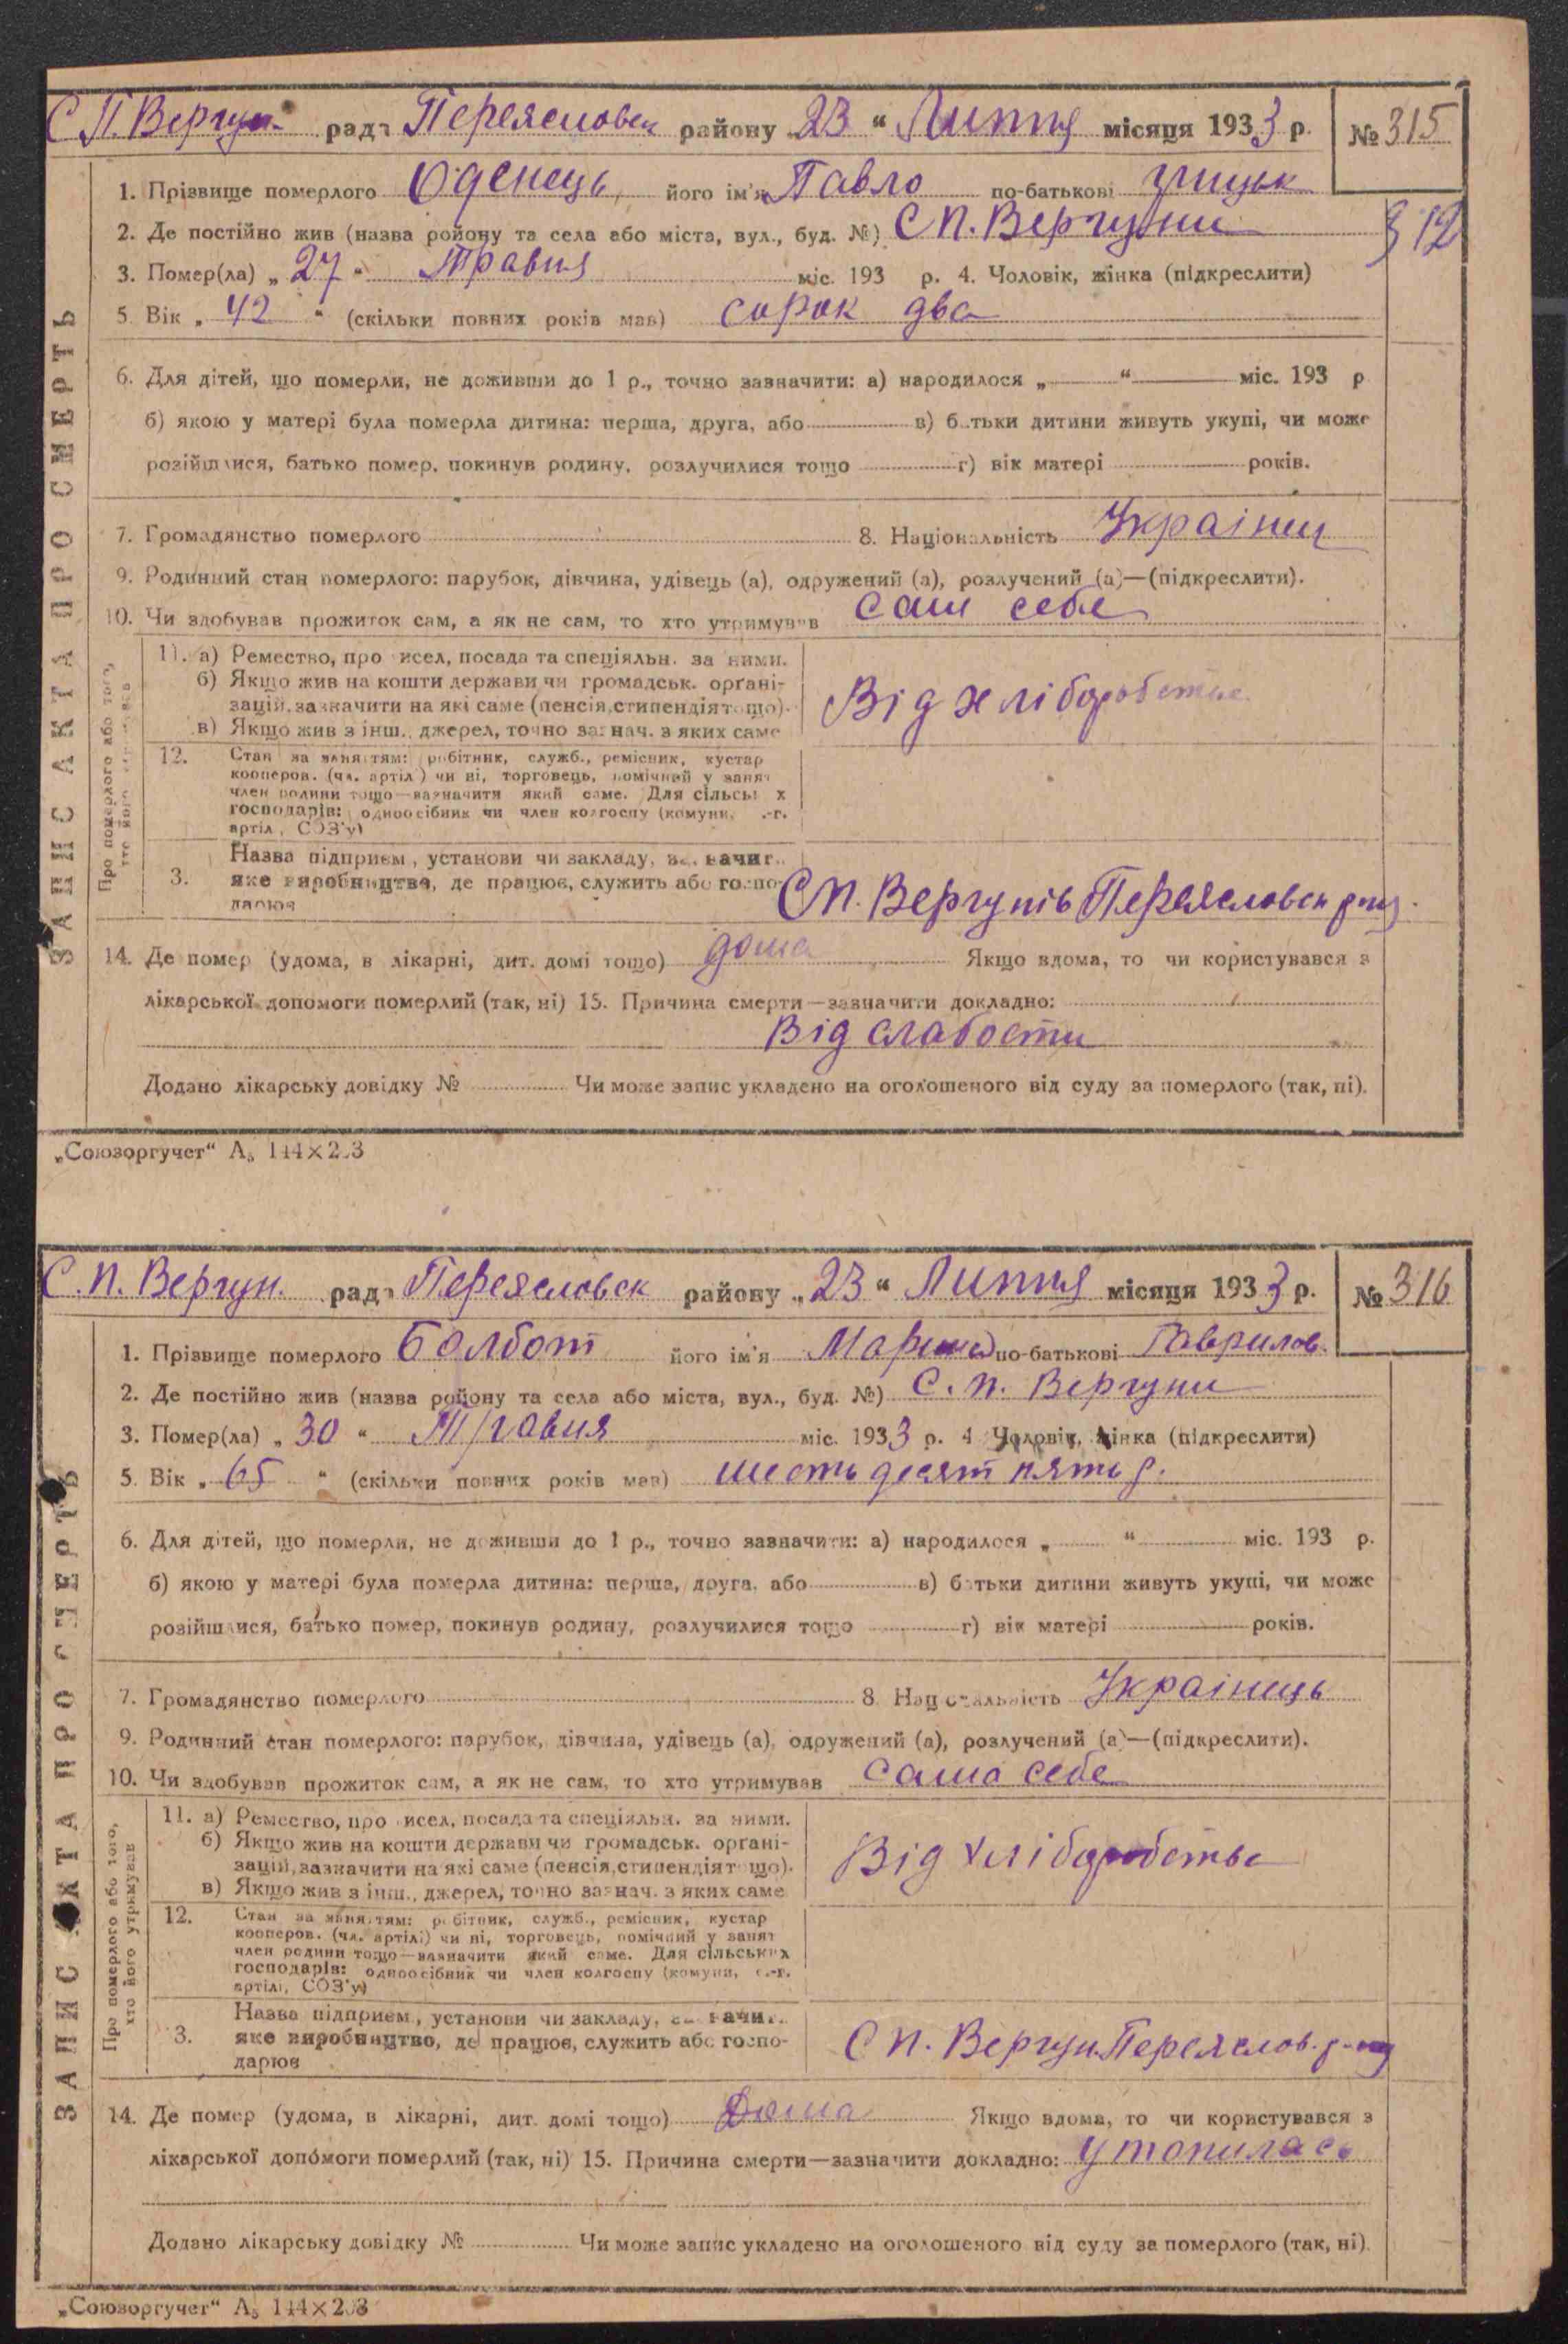 С П. Вергун. рада Переясловск району „23“ Липня місяця 1933 р. № 315
1. Прізвище померлого Оденець, його ім'я Павло по-батькові Грицьк
312
2. Де постійно жив (назва ройону та села або міста, вул., буд. №) С П. Вергуни
3. Помер(ла) „27“ Травня міс. 193 р. 4. Чоловік, жінка (підкреслити)
5. Вік „42“ (скільки повних років мав) сорок два
6. Для дітей, що померли, не доживши до 1 р., точно зазначити: а) народилося „ “ міс. 193 р
б) якою у матері була померла дитина: перша, друга, або в) б тьки дитини живуть укупі, чи може
розійшлися, батько помер, покинув родину, розлучилися тощо г) вік матері років.
7. Громадянство померлого 8. Національність Українц
9. Родинний стан померлого: парубок, дівчина, удівець (а), одружений (а), розлучений (а)—(підкреслити).
10. Чи здобував прожиток сам, а як не сам, то хто утримував сам себе
11. а) Ремество, про исел, посада та спеціяльн. за ними.
б) Якщо жив на кошти держави чи громадськ. орґані-
зацій, зазначити на які саме (пенсія, стипендія тощо).
в) Якщо жив з інш., джерел, точно зазнач. з яких саме
Від хліборобства
12. Стан за заняттям: робітник, служб., ремісник, кустар
кооперов. (чл. артіл ) чи ні, торговець, помічний у занят
член родини тощо—вазначити який саме. Для сільськ х
господарів: одноосібник чи член колгоспу (комуни, .-г.
артіл , СОЗ'у)
Назва підприєм , установи чи закладу, за начит..
3. яке виробництво, де працює, служить або госпо-
дарює
С П. Вергунів Переясловск р-ну.
14. Де помер (удома, в лікарні, дит. домі тощо) дома Якщо вдома, то чи користувався з
лікарської допомоги померлий (так, ні) 15. Причина смерти—зазначити докладно:
Від слабости
Додано лікарську довідку № Чи може запис укладено на оголошеного від суду за померлого (так, ні).
ЗАПИС АКТА ПРО СМЕРТЬ
Про померлого або того,
хто його
„Союзоргучет“ А₅ 144×2 3
С. П. Вергун. рада Переясловск району „23“ Липня місяця 1933 р. № 316
1. Прізвище померлого Балбот його ім'я по-батькові Гаврилов.
2. Де постійно жив (назва ройону та села або міста, вул., буд. №) С. П. Вергуни
3. Помер(ла) „30“ Травня міс. 1933 р. 4 Чоловік, жінка (підкреслити)
5. Вік „65“ (скільки повних років мав) шестьдесят пять р.
6. Для дітей, що померли, не доживши до 1 р., точно зазначити: а) народилося „ “ міс. 193 р.
б) якою у матері була померла дитина: перша, друга, або в) батьки дитини живуть укупі, чи може
розійшлися, батько помер, покинув родину, розлучилися тощо г) вік матері років.
7. Громадянство померлого 8. Національність Українець
9. Родинний стан померлого: парубок, дівчина, удівець (а), одружений (а), розлучений (а)—(підкреслити).
10. Чи здобував прожиток сам, а як не сам, то хто утримував сама себе
11. а) Ремество, про исел, посада та спеціяльн. за ними.
б) Якщо жив на кошти держави чи громадськ. орґані-
зацій, зазначити на які саме (пенсія, стипендія тощо).
в) Якщо жив з інш., джерел, точно зазнач. з яких саме
Від хліборобства
12. Стан за заняттям: робітник, служб., ремісник, кустар
кооперов. (чл. артілі) чи ні, торговець, помічний у занят
член родини тощо—вазначити який саме. Для сільських
господарів: одноосібник чи член колгоспу (комуни, с.-г.
артілі, СОЗ'у)
Назва підприєм , установи чи закладу, за начи..
3. яке виробництво, де працює, служить або госпо-
дарює
С П. Вергун. Переяслов. р-ну
14. Де помер (удома, в лікарні, дит. домі тощо) Дома Якщо вдома, то чи користувався з
лікарської допомоги померлий (так, ні) 15. Причина смерти—зазначити докладно: утопилась
Додано лікарську довідку № Чи може запис укладено на оголошеного від суду за померлого (так, ні).
ЗАПИС АКТА ПРО СМЕРТЬ
Про померлого або того,
хто його утримував
„Союзоргучет“ А₅ 144×2 3